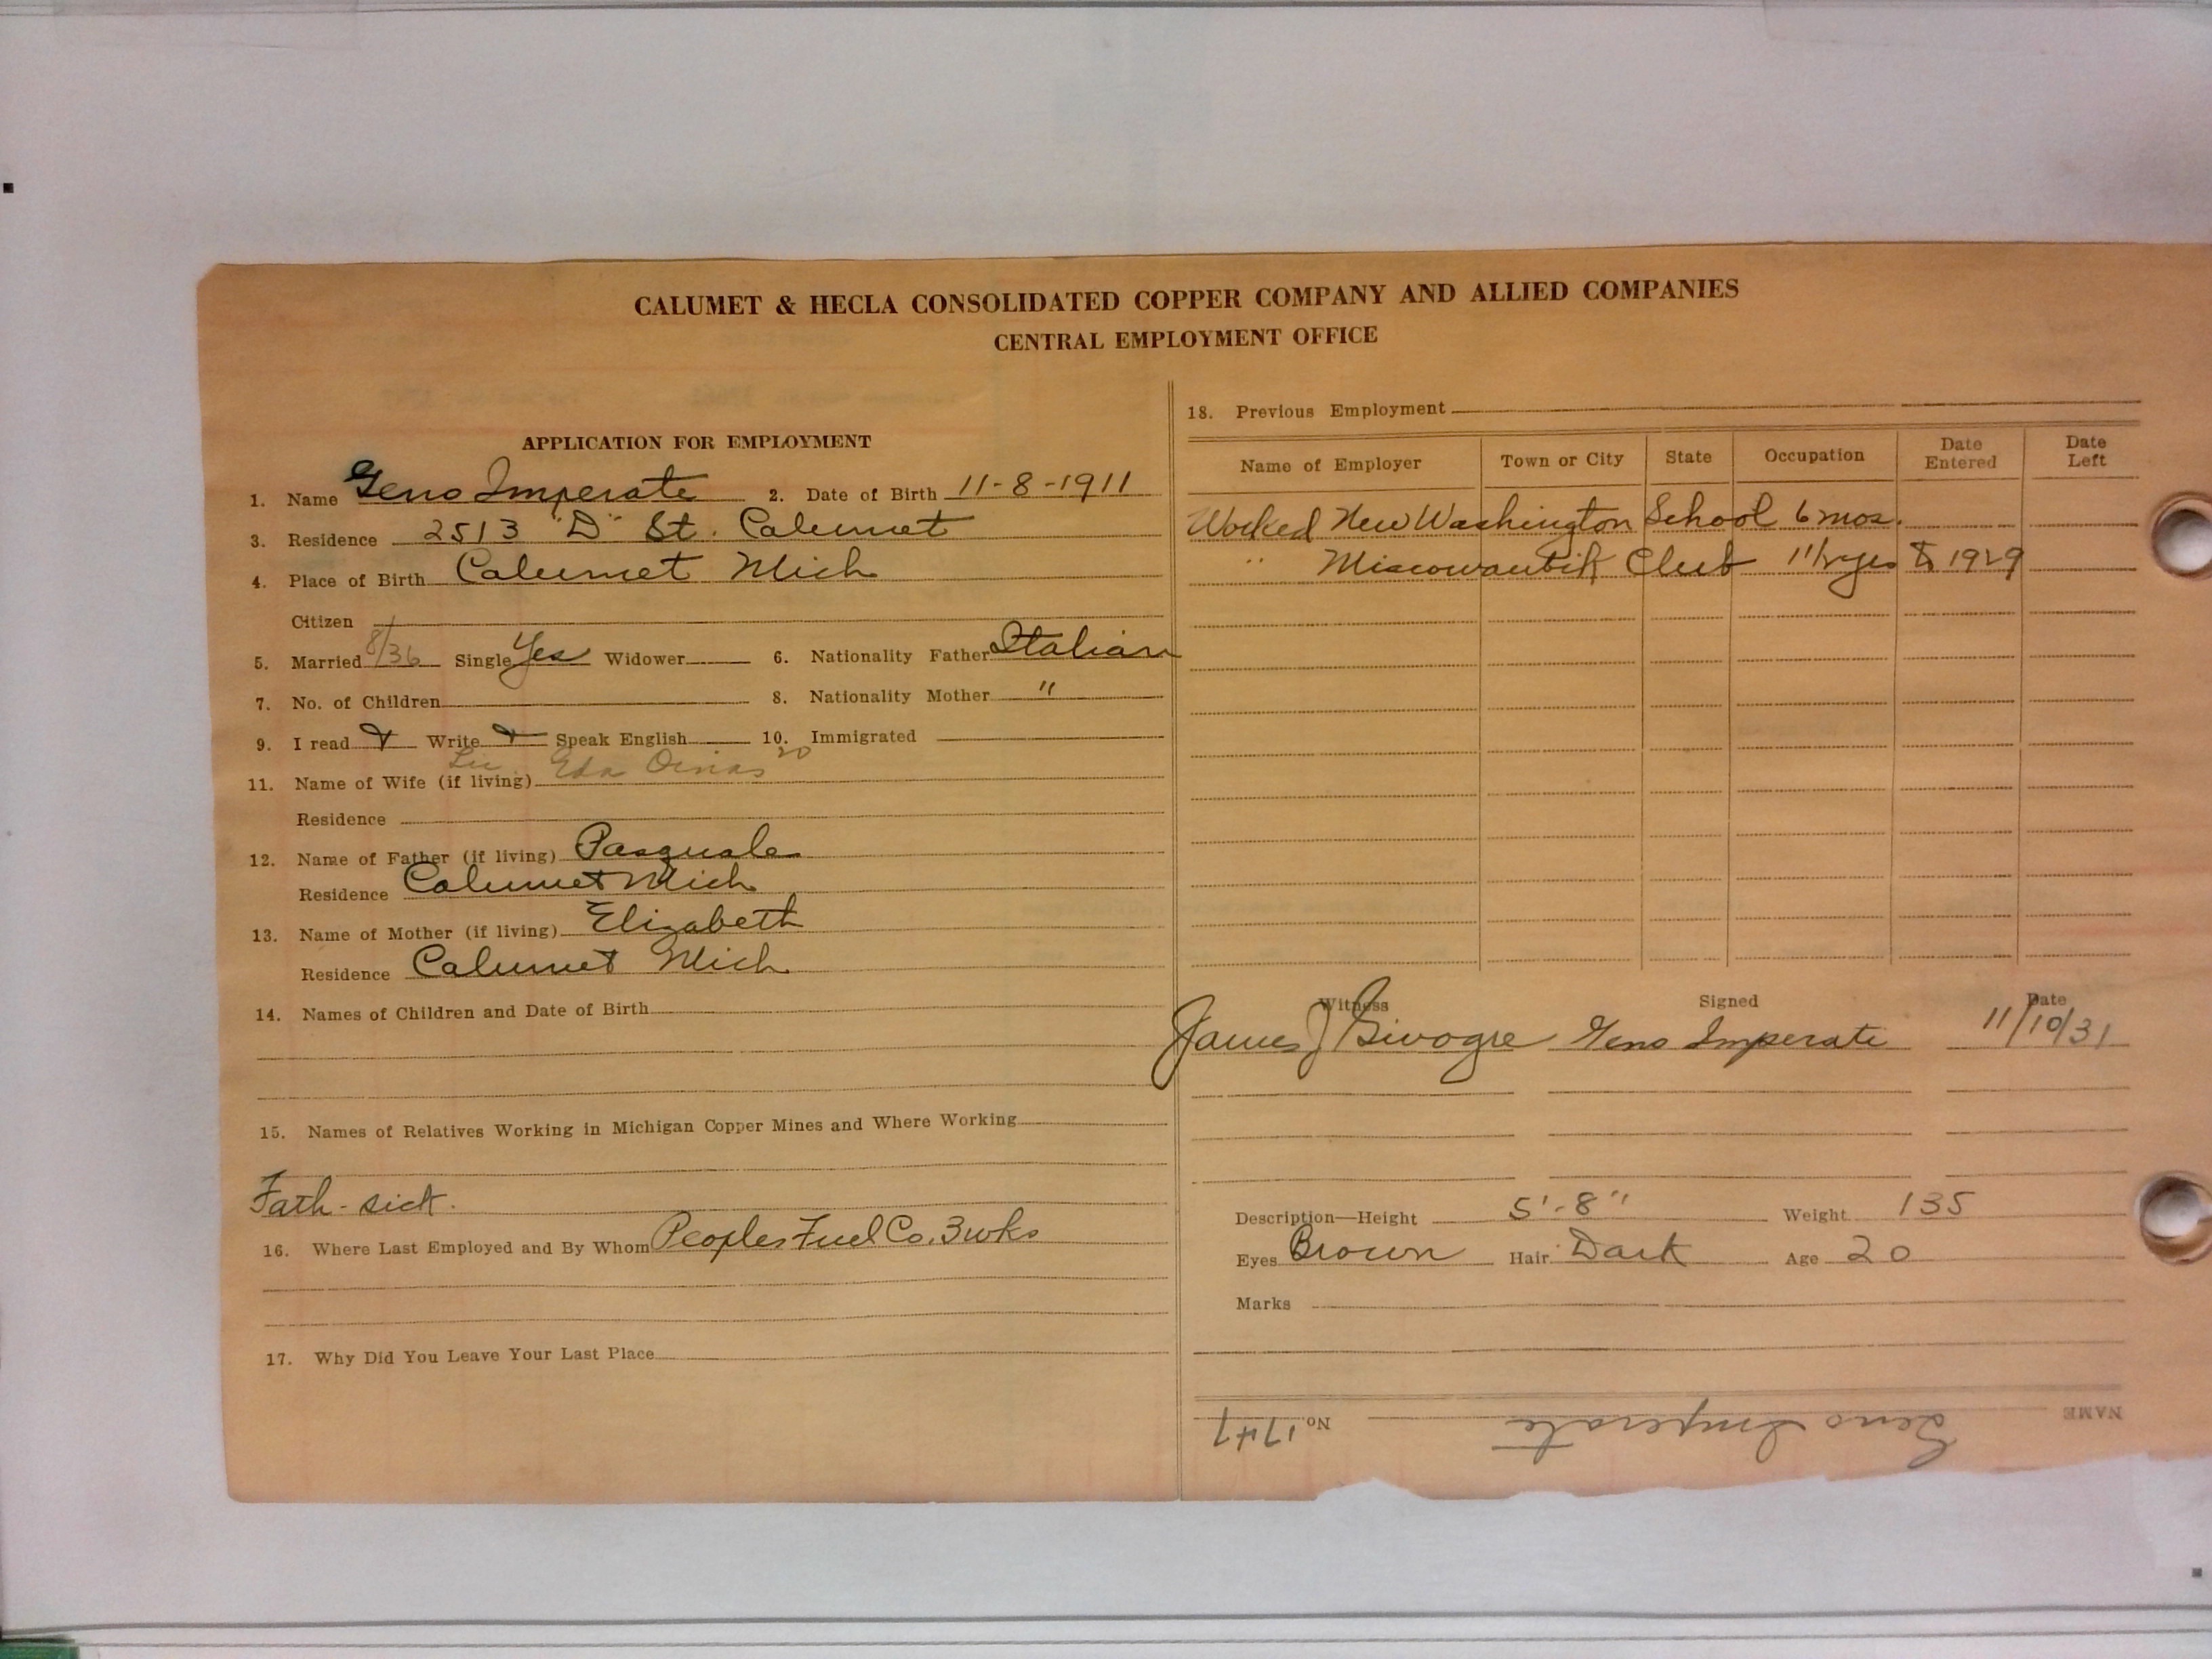 CALUMET & HECLA CONSOLIDATED COPPER COMPANY AND ALLIED COMPANIES
CENTRAL EMPLOYMENT OFFICE
APPLICATION FOR EMPLOYMENT
1. Name Geno Imperate 2. Date of Birth 11-8-1911
3. Residence 2513 "D" St. Calumet
4. Place of Birth Calumet Mich
Citizen
5. Married 8/36 Single Yes Widower 6. Nationality Father Italian
7. No. of Children 8. Nationality Mother "
9. I read Write Speak English 10. Immigrated
11. Name of Wife (if living) Eda 20
Residence
12. Name of Father (if living) Pasquale
Residence Calumet Mich
13. Name of Mother (if living) Elizabeth
Residence Calumet Mich
14. Names of Children and Date of Birth
15. Names of Relatives Working in Michigan Copper Mines and Where Working
Fath - sick.
16. Where Last Employed and By Whom Peoples Fuel Co. 3 wks
17. Why Did You Leave Your Last Place
18. Previous Employment
Name of Employer Town or City State Occupation Date Entered Date Left
Worked New Washington School 6 mos.
" Miscowaubik Club 1 1/2 yrs 1929
Witness Signed Date
James J Geno Imperate 11/10/31
Description—Height 5'-8" Weight 135
Eyes Brown Hair Dark Age 20
Marks
NAME Geno Imperate No. 1747